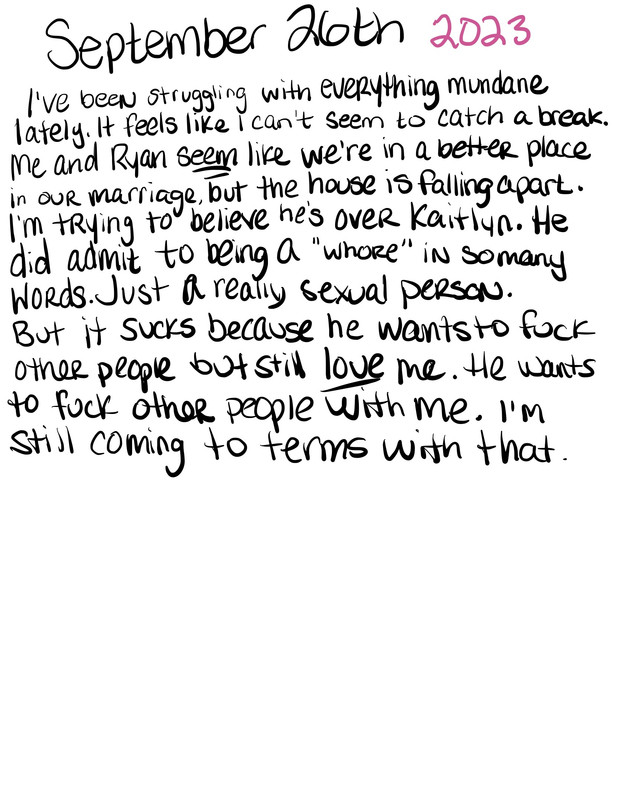 September 26th 2023
I've been struggling with everything mundane
lately. It feels like I can't seem to catch a break.
Me and Ryan seem like we're in a better place
in our marriage, but the house is falling apart.
I'm trying to believe he's over Kaitlyn. He
did admit to being a "whore" in so many
words. Just a really sexual person.
But it sucks because he wants to fuck
other people but still love me. He wants
to fuck other people with me. I'm
still coming to terms with that.